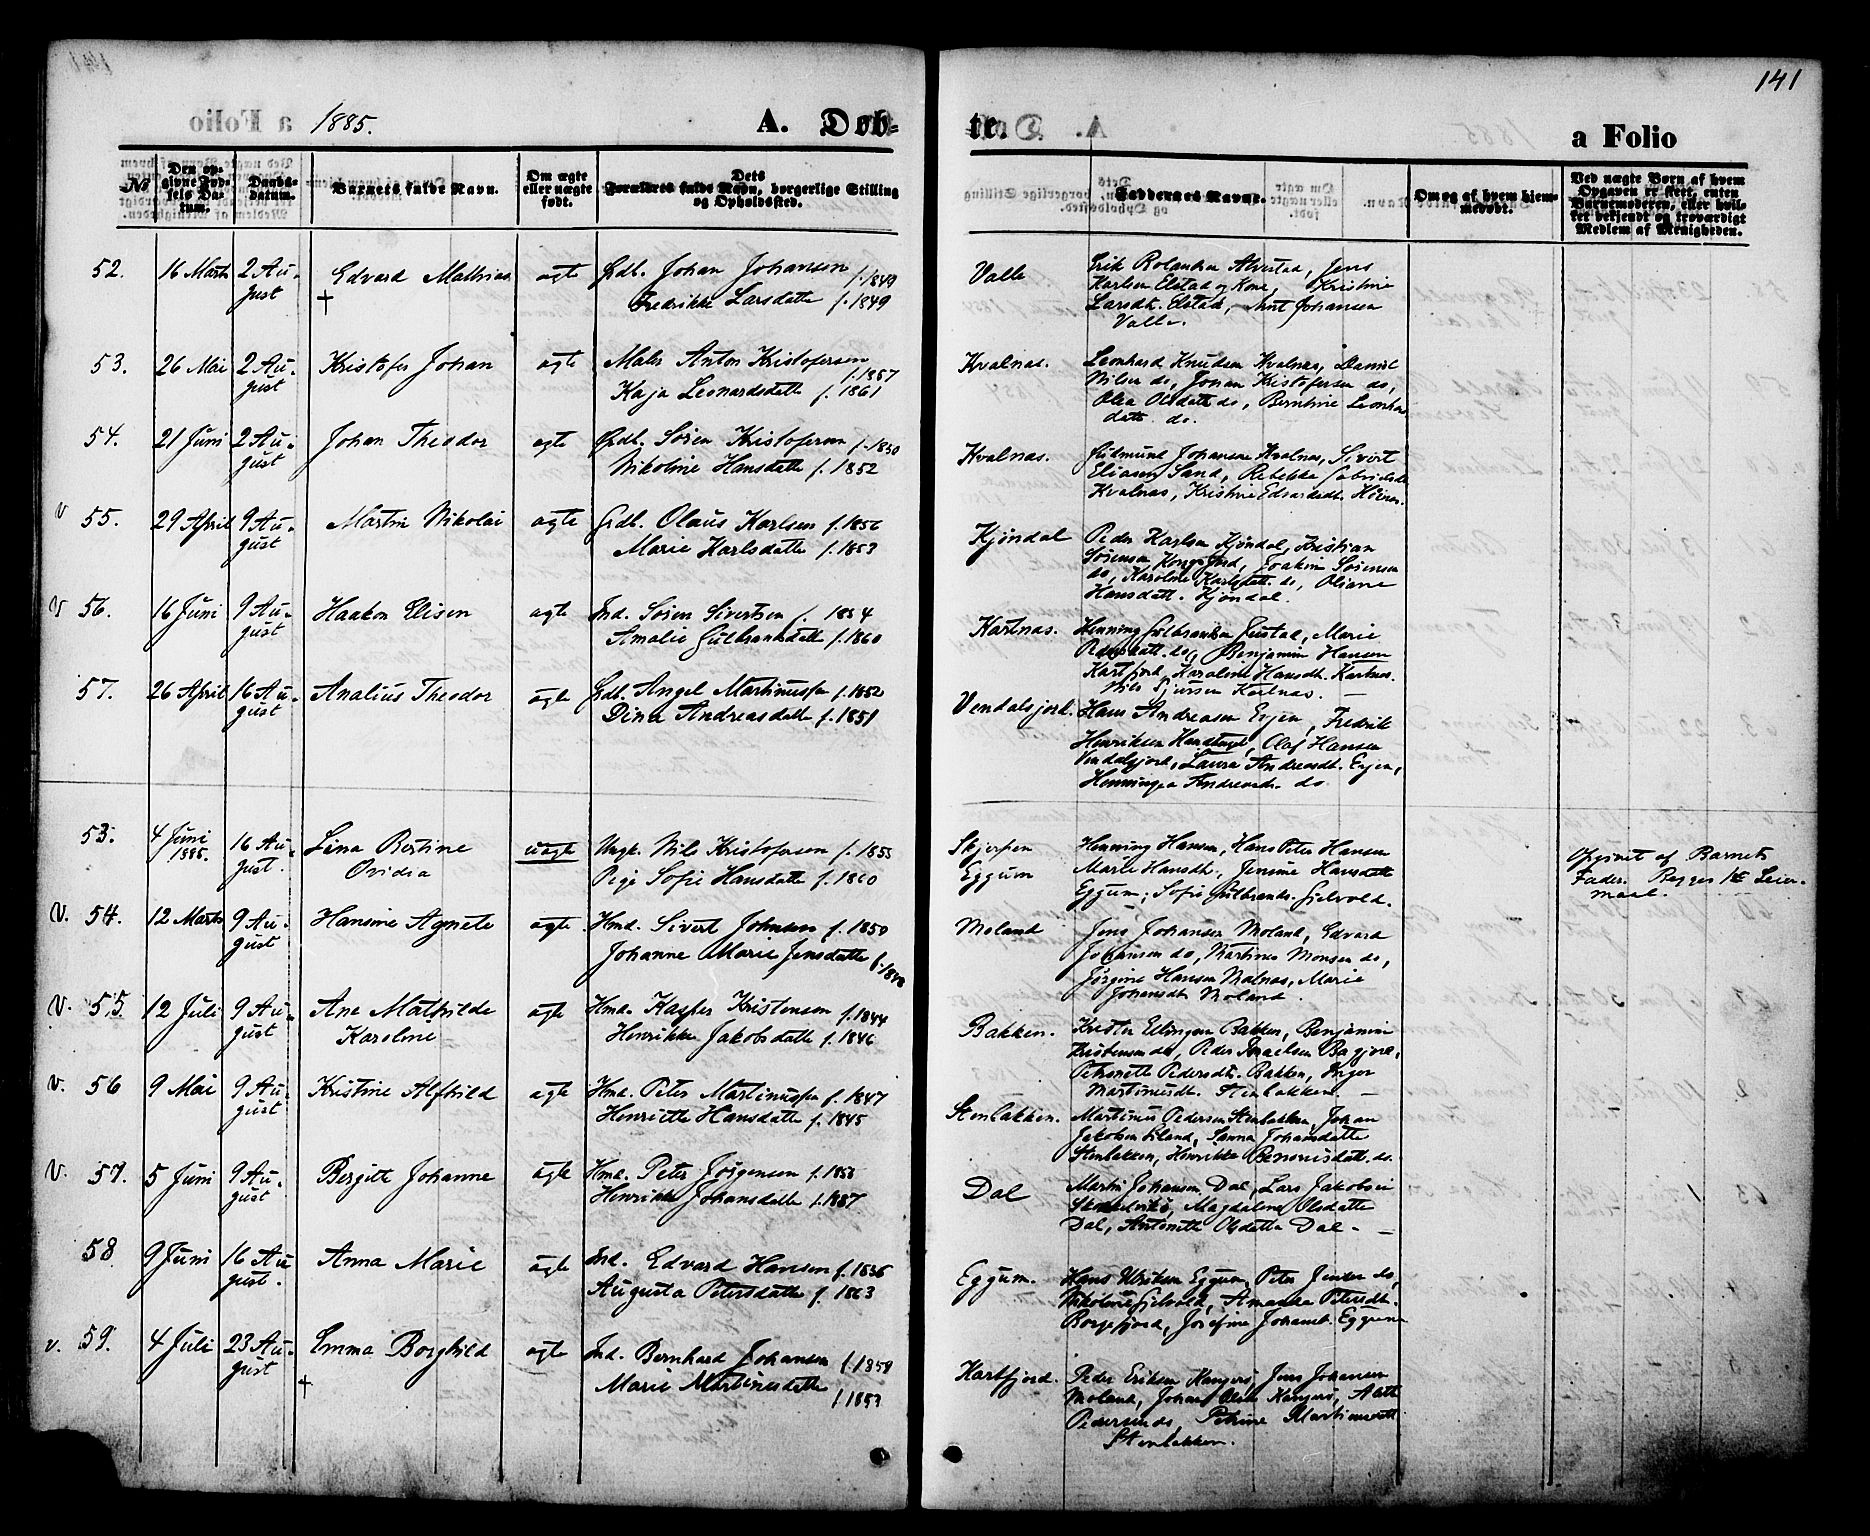 141
1885.
A. Døb-
te.
a Folio
No
Den op-
givne Fød-
sels Da-
tum.
Daabs-
datum.
Barnets fulde Navn.
Om ægte
eller uægte
født.
Dets
Forældres fulde Navn, borgerlige Stilling
og Opholdssted.
Faddernes Navne.
Om og af hvem hjem-
medøbt.
Ved uægte Børn af hvem
Opgaven er skeet, enten
Barnemoderen, eller hvil-
ket bekjendt og troværdigt
Medlem af Menigheden.
52. 16 Marts 2 Au- Edvard Mathias ægte Grdb. Johan Johansen f. 1849 Valle
gust † Fredrikke Larsdatte f. 1849
Erik Rolandsen Alvestad, Jens
Karlsen Elstad og Kone, Kristine
Larsdt. Elstad, Johansen
Valle.
53. 26 Mai 2 Au- Kristofer Johan ægte Maler Anton Kristofersen f. 1857 Kvalnæs.
gust Kaja Leonardsdatte f. 1861
Leonhard Knudsen Kvalnæs, Daniel
Nilsen do, Johan Kristofersen do,
Olea Olsdatte do, Berntine Leonhards
datte do.
54. 21 Juni 2 Au- Johan Theodor ægte Grdb. Søren Kristofersen f. 1850 Kvalnæs.
gust Nikoline Hansdatte f. 1852
Gudmund Johansen Kvalnæs, Sivert
Eliasen Sand, Rebekka Gabrielsdt.
Kvalnæs, Kristine Edvardsdt.
v 55. 29 April 9 Au- Martin Nikolai ægte Grdb. Olaus Karlsen f. 1856 Kjøndal
gust Marie Karlsdatte f. 1853
Peder Karlsen Kjøndal, Kristian
Sørensen, Joakim Sørensen
do, Karoline Karlsdatt. do, Oliane
Hansdatt. Kjøndal.
v 56. 16 Juni 9 Au- Haakon Elisen ægte Ind. Søren Sivertsen f. 1854 Kartnæs.
gust Amalie Gulbrandsdatte f. 1860
Henning Gulbrandsen Justad, Marie
Pedersdatt. do, Benjamin Hansen
Kartfjord, Karoline Hansdt. Kartnæs.
Nils Sjursen Kartnæs. —
57. 26 April 16 Au- Analius Theodor ægte Grdb. Angel Martinussen f. 1852 Vendalsjord.
gust Dina Andreasdatte f. 1851
Hans Andreasen Evjen, Fredrik
Henriksen, Olaf Hansen
Vendalsjord, Laura Andreasdt. Evjen,
Henningea Andreasdt. do
53. 4 Juni 16 Au- Lina Bertine uægte Ungk. Nils Kristofersen f. 1855 Skjerpen
1885. gust. Ovidia Pige Sofie Hansdatte f. 1860 Eggum
Henning Hansen, Hans Peter Hansen
Marie Hansdt., Jenine Hansdatte
Eggum; Sofie Gulbrands. Gjelvold.
Opgivet af Barnets
Fader. Begges 1ste Leier-
maal.
V. 54. 12 Marts 9 Au- Hansine Agnete ægte Hmd. Sivert Johnsen f. 1850 Moland
gust Johanne Marie Jensdatte
Jens Johansen Moland, Edvard
Johansen do, Martines Monsen do,
Jørgine Hansen Malnæs, Marie
Johansdt. Moland.
V. 55. 12 Juli 9 Au- Ane Mathilde ægte Hmd. Kasper Kristensen f. 1844 Bakken.
gust Karoline Henrikke Jakobsdatte f. 1846
Krister Ellingsen Bakken, Benjamin
Kristensen do, Peder Israelsen,
Petronelle Pedersdt. Bakken, Inger
Martinusdt. Stenbakken. —
v. 56 9 Mai 9 Au- Kristine Alfhild ægte Hmd. Peter Martinussen f. 1847 Stenbakken.
gust Henriette Hansdatte f. 1845
Martinus Pedersen Stenbakken, Johan
Jakobsen, Sanna Johansdatte
Stenbakken, Henrikke Benonisdatt. do.
V. 57. 5 Juni 9 Au- Bergitte Johanne ægte Hmd. Peter Jørgensen Dal
gust Henrikke Johansdatte
Martin Johansen Dal, Lars Jakobsen
Magdalena Olsdatte
Dal, Antonette Olsdatte Dal —
58 9 Juni 16 Au- Anna Marie ægte Ind. Edvard Hansen f. 1856 Eggum.
gust. Augusta Petersdatte f. 1863
Hans Ulriksen Eggum, Peter Jensen do,
Nikoline Gjelvold, Amanda Petersdt.
Borgefjord, Josefine Johansdt. Eggum
v. 59. 4 Juli 23 Au- Emma Borghild ægte Ind. Bernhard Johansen f. 1859 Kartfjord.
gust † Marie Martinesdatte f. 1853
Peder Eriksen Kangerø, Jens Johansen
Moland, Johan Olsen Kangerø,
Pedersen do, Petrine Martinusdt
Stenbakken.